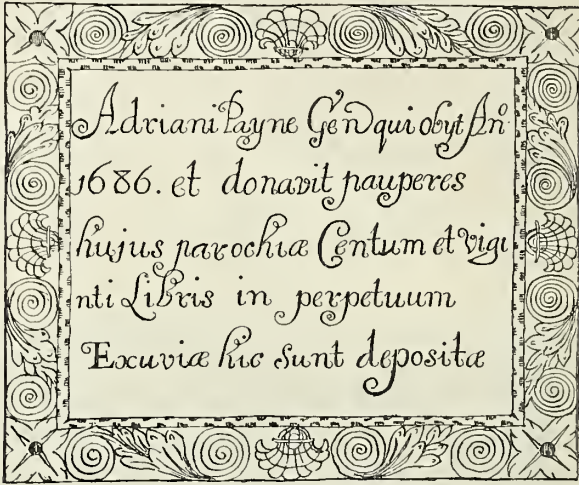 Adriani Payne Gen̄ qui obyt An̄o
1686. et donavit pauperes
hujus parochiæ Centum et vigi
nti Libris in perpetuum
Exuviæ hic Sunt depositæ